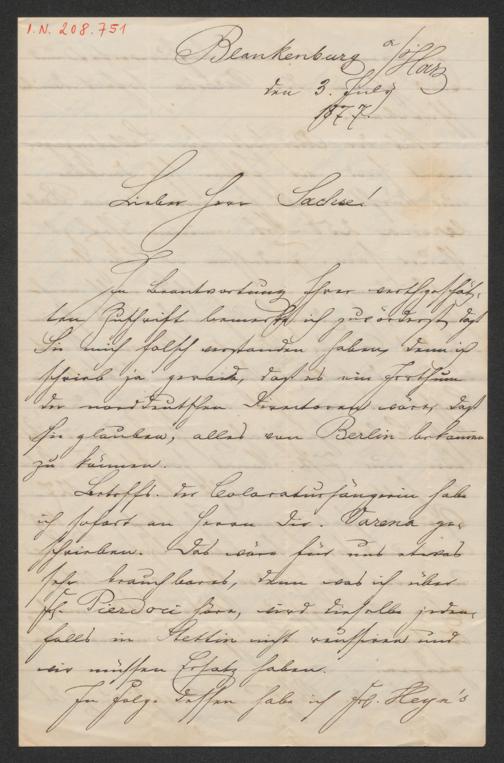 I.N. 208.751
Blankenburg a/Harz
den 3. July
1877.
Lieber Herr Sachse!
In Beantwortung Ihrer werthgeschätz-
ten Zuschrift bemerke ich zuvörderst, daß
Sie mich falsch verstanden haben, denn ich
schrieb ja gerade, daß es ein Irrthum
der norddeutschen Direktoren wäre, daß
sie glauben, alles von Berlin bekommen
zu können.
Betreffs. der Coloratursängerin habe
ich sofort an Herrn Dir. Varena ge-
schrieben. Das wäre für uns etwas
sehr brauchbares, denn was ich über
Fr. Pierdoci höre, wird dieselbe jeden-
falls in Stettin nicht reussiren und
wir müssen Ersatz haben.
In Folge dessen habe ich Frl. Heyn's